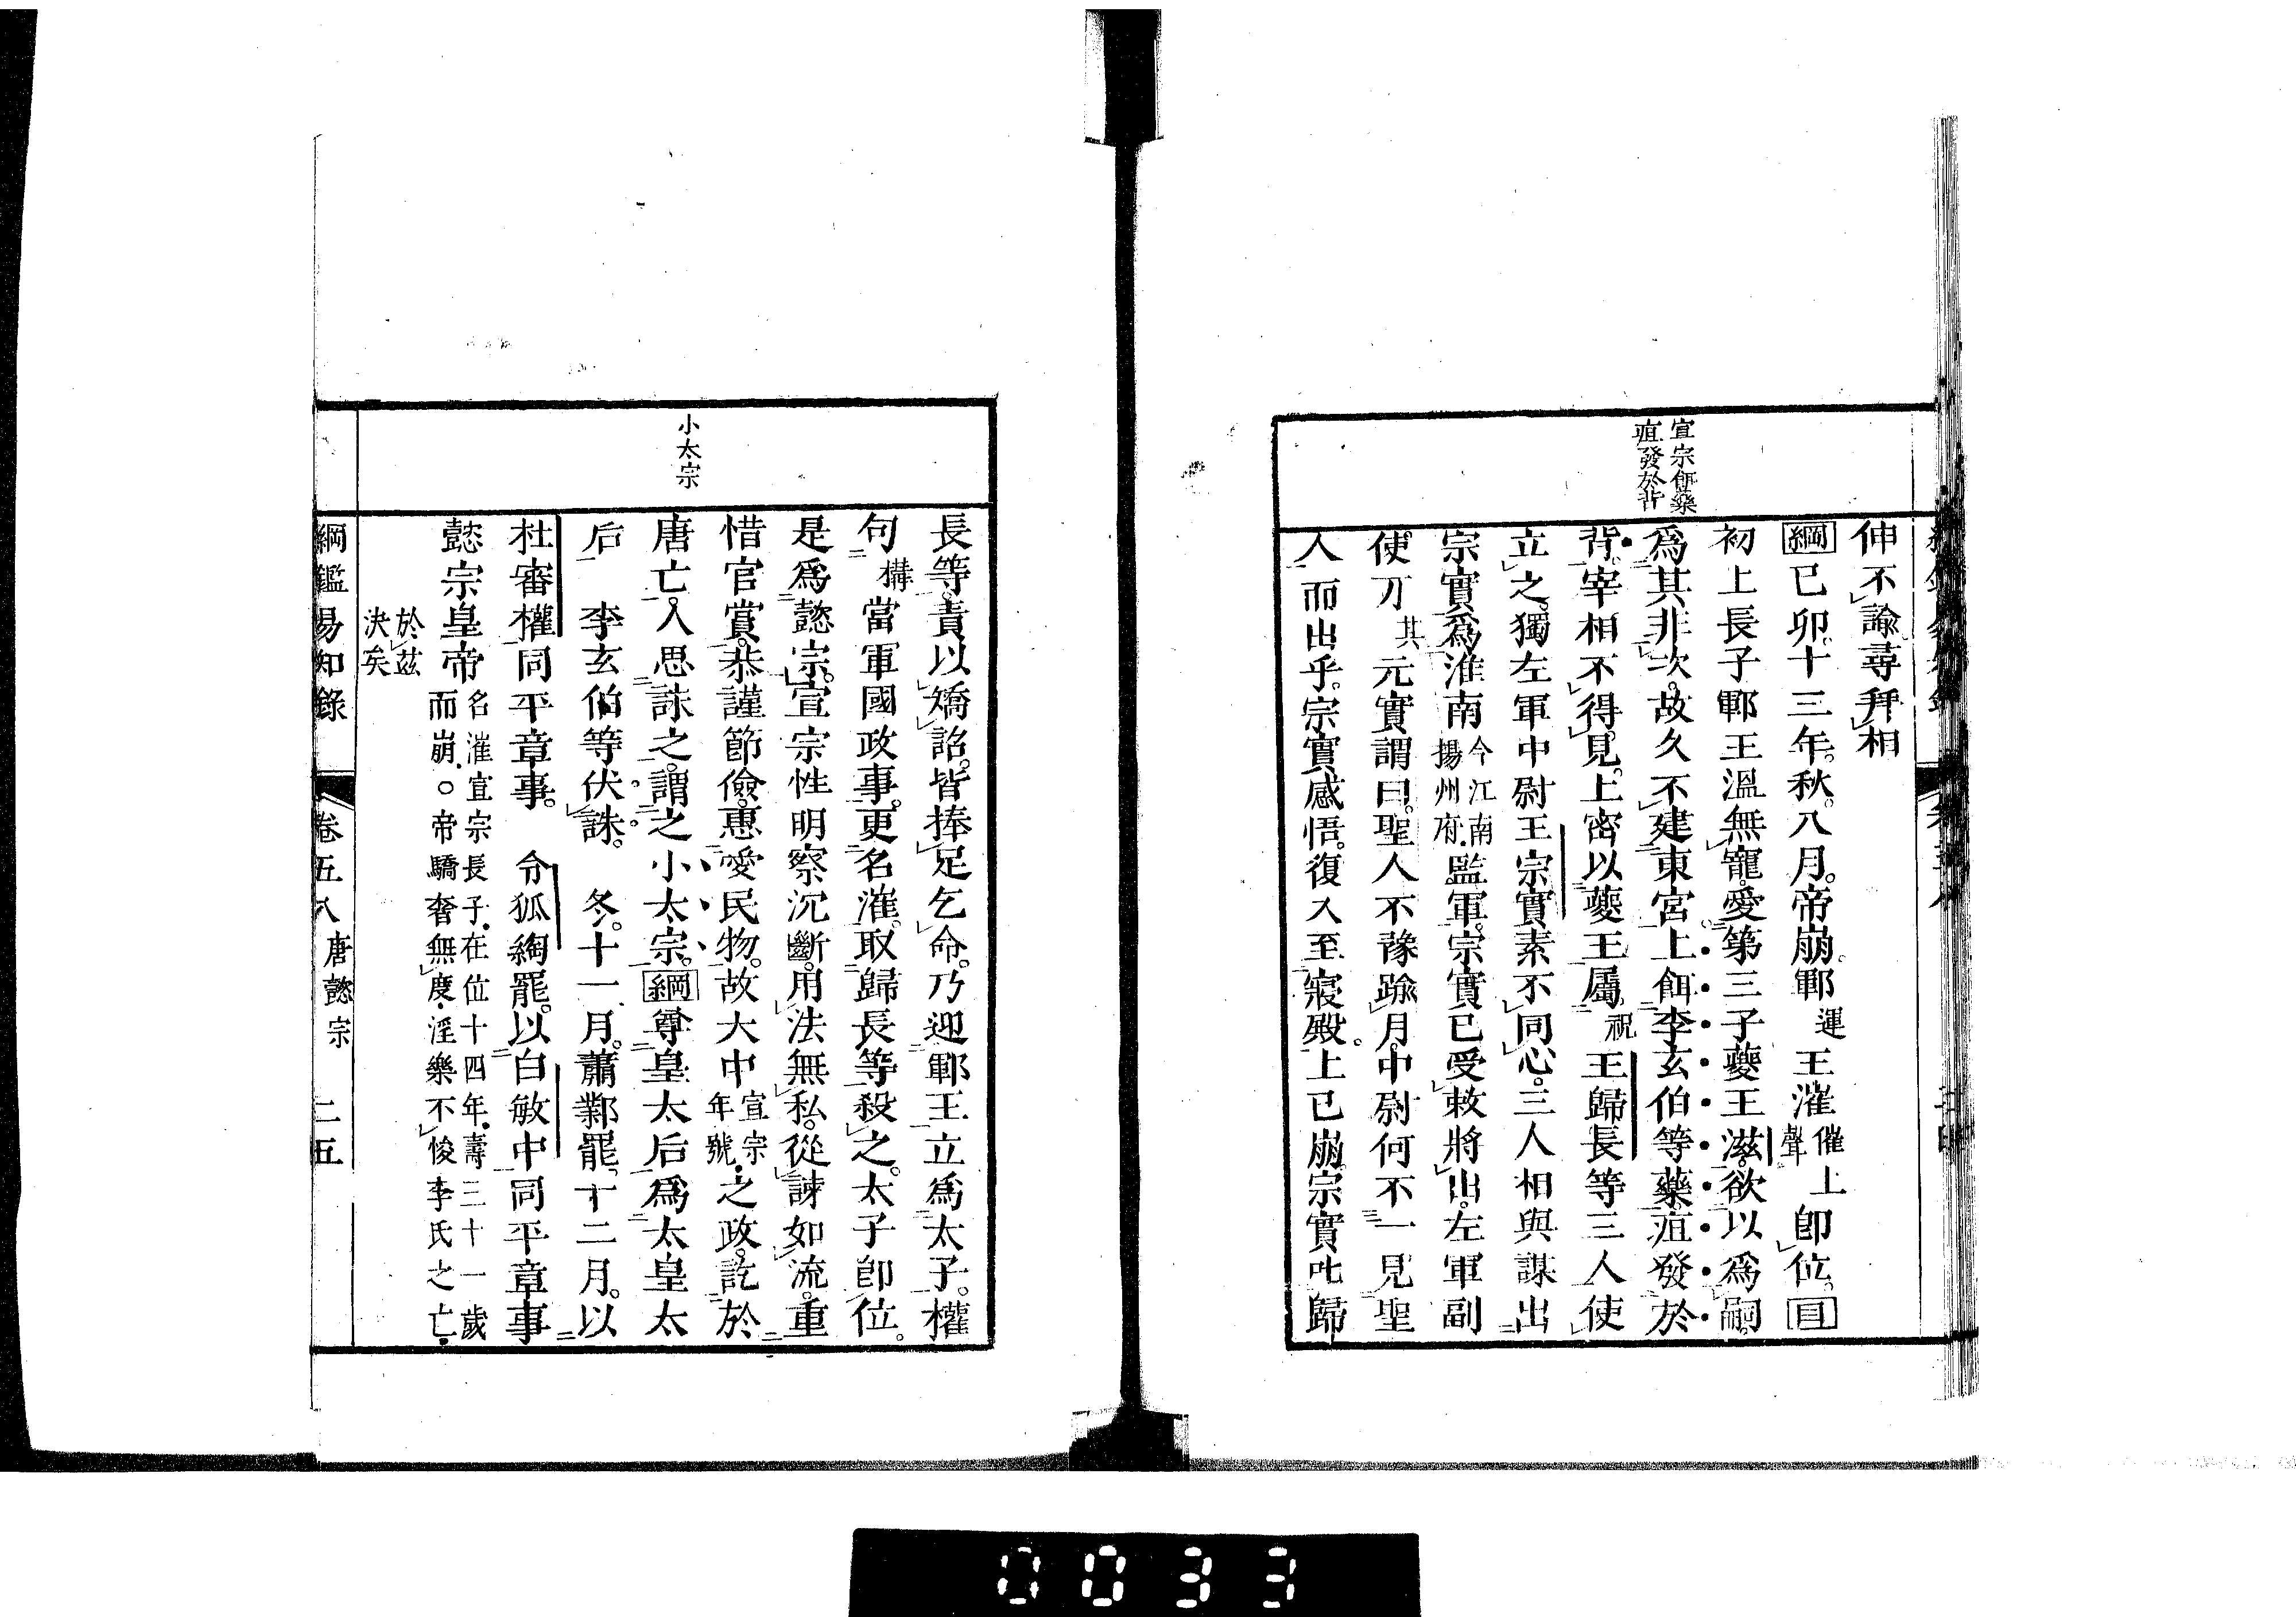 宣宗餌藥
疽發於背
伸不諭尋拜相
綱己卯。十三年。秋。八月。帝崩。鄆運王漼催上聲卽位。目
初上長子鄆王溫無寵。愛第三子夔王滋。欲以爲嗣。
爲其非次。故久不建東宮。上餌李玄伯等藥。疽發於
背。宰相不得見。上密以夔王屬祝王歸長等三人使
立之。獨左軍中尉王宗實素不同心。三人相與謀出
宗實爲淮南今江南揚州府。監軍。宗實已受敕將出。左軍副
使亓其元實謂曰。聖人不豫踰月。中尉何不一見聖
人而出乎。宗實感悟。復入至寢殿。上已崩。宗實叱歸
小太宗
長等。責以矯詔。皆捧足乞命。乃迎鄆王立爲太子。權
句構當軍國政事。更名漼。取歸長等殺之。太子卽位。
是爲懿宗。宣宗性明察沉斷。用法無私。從諫如流。重
惜官賞。恭謹節儉。惠愛民物。故大中宣宗年號。之政。訖於
唐亡。人思詠之。謂之小太宗。綱尊皇太后爲太皇太
后　李玄伯等伏誅。　冬。十一月。蕭鄴罷。十二月。以
杜審權同平章事。　令狐綯罷。以白敏中同平章事
懿宗皇帝名漼宣宗長子。在位十四年。壽三十一歲而崩。○帝驕奢無度。淫樂不悛李氏之亡。
於茲決矣
綱鑑易知錄　卷五八　唐懿宗　二五